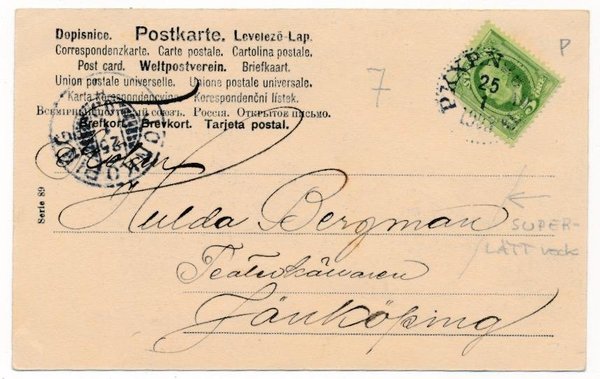 Dopisnice. Postkarte. Levelező-Lap.
Correspondenzkarte. Carte postale. Cartolina postale.
Post card. Weltpostverein. Briefkaart.
Union postale universelle. Unione postale universale.
Karta korespondencyjna. Korespondenční lístek.
Всемірный почтовый союз. Россія. Открытое письмо.
Brefkort. Brevkort. Tarjeta postal.
P
7
PKXP. N
25
1
25
Serie 89
Hulda Bergman
SUPER-
LÄTT veck
Jönköping